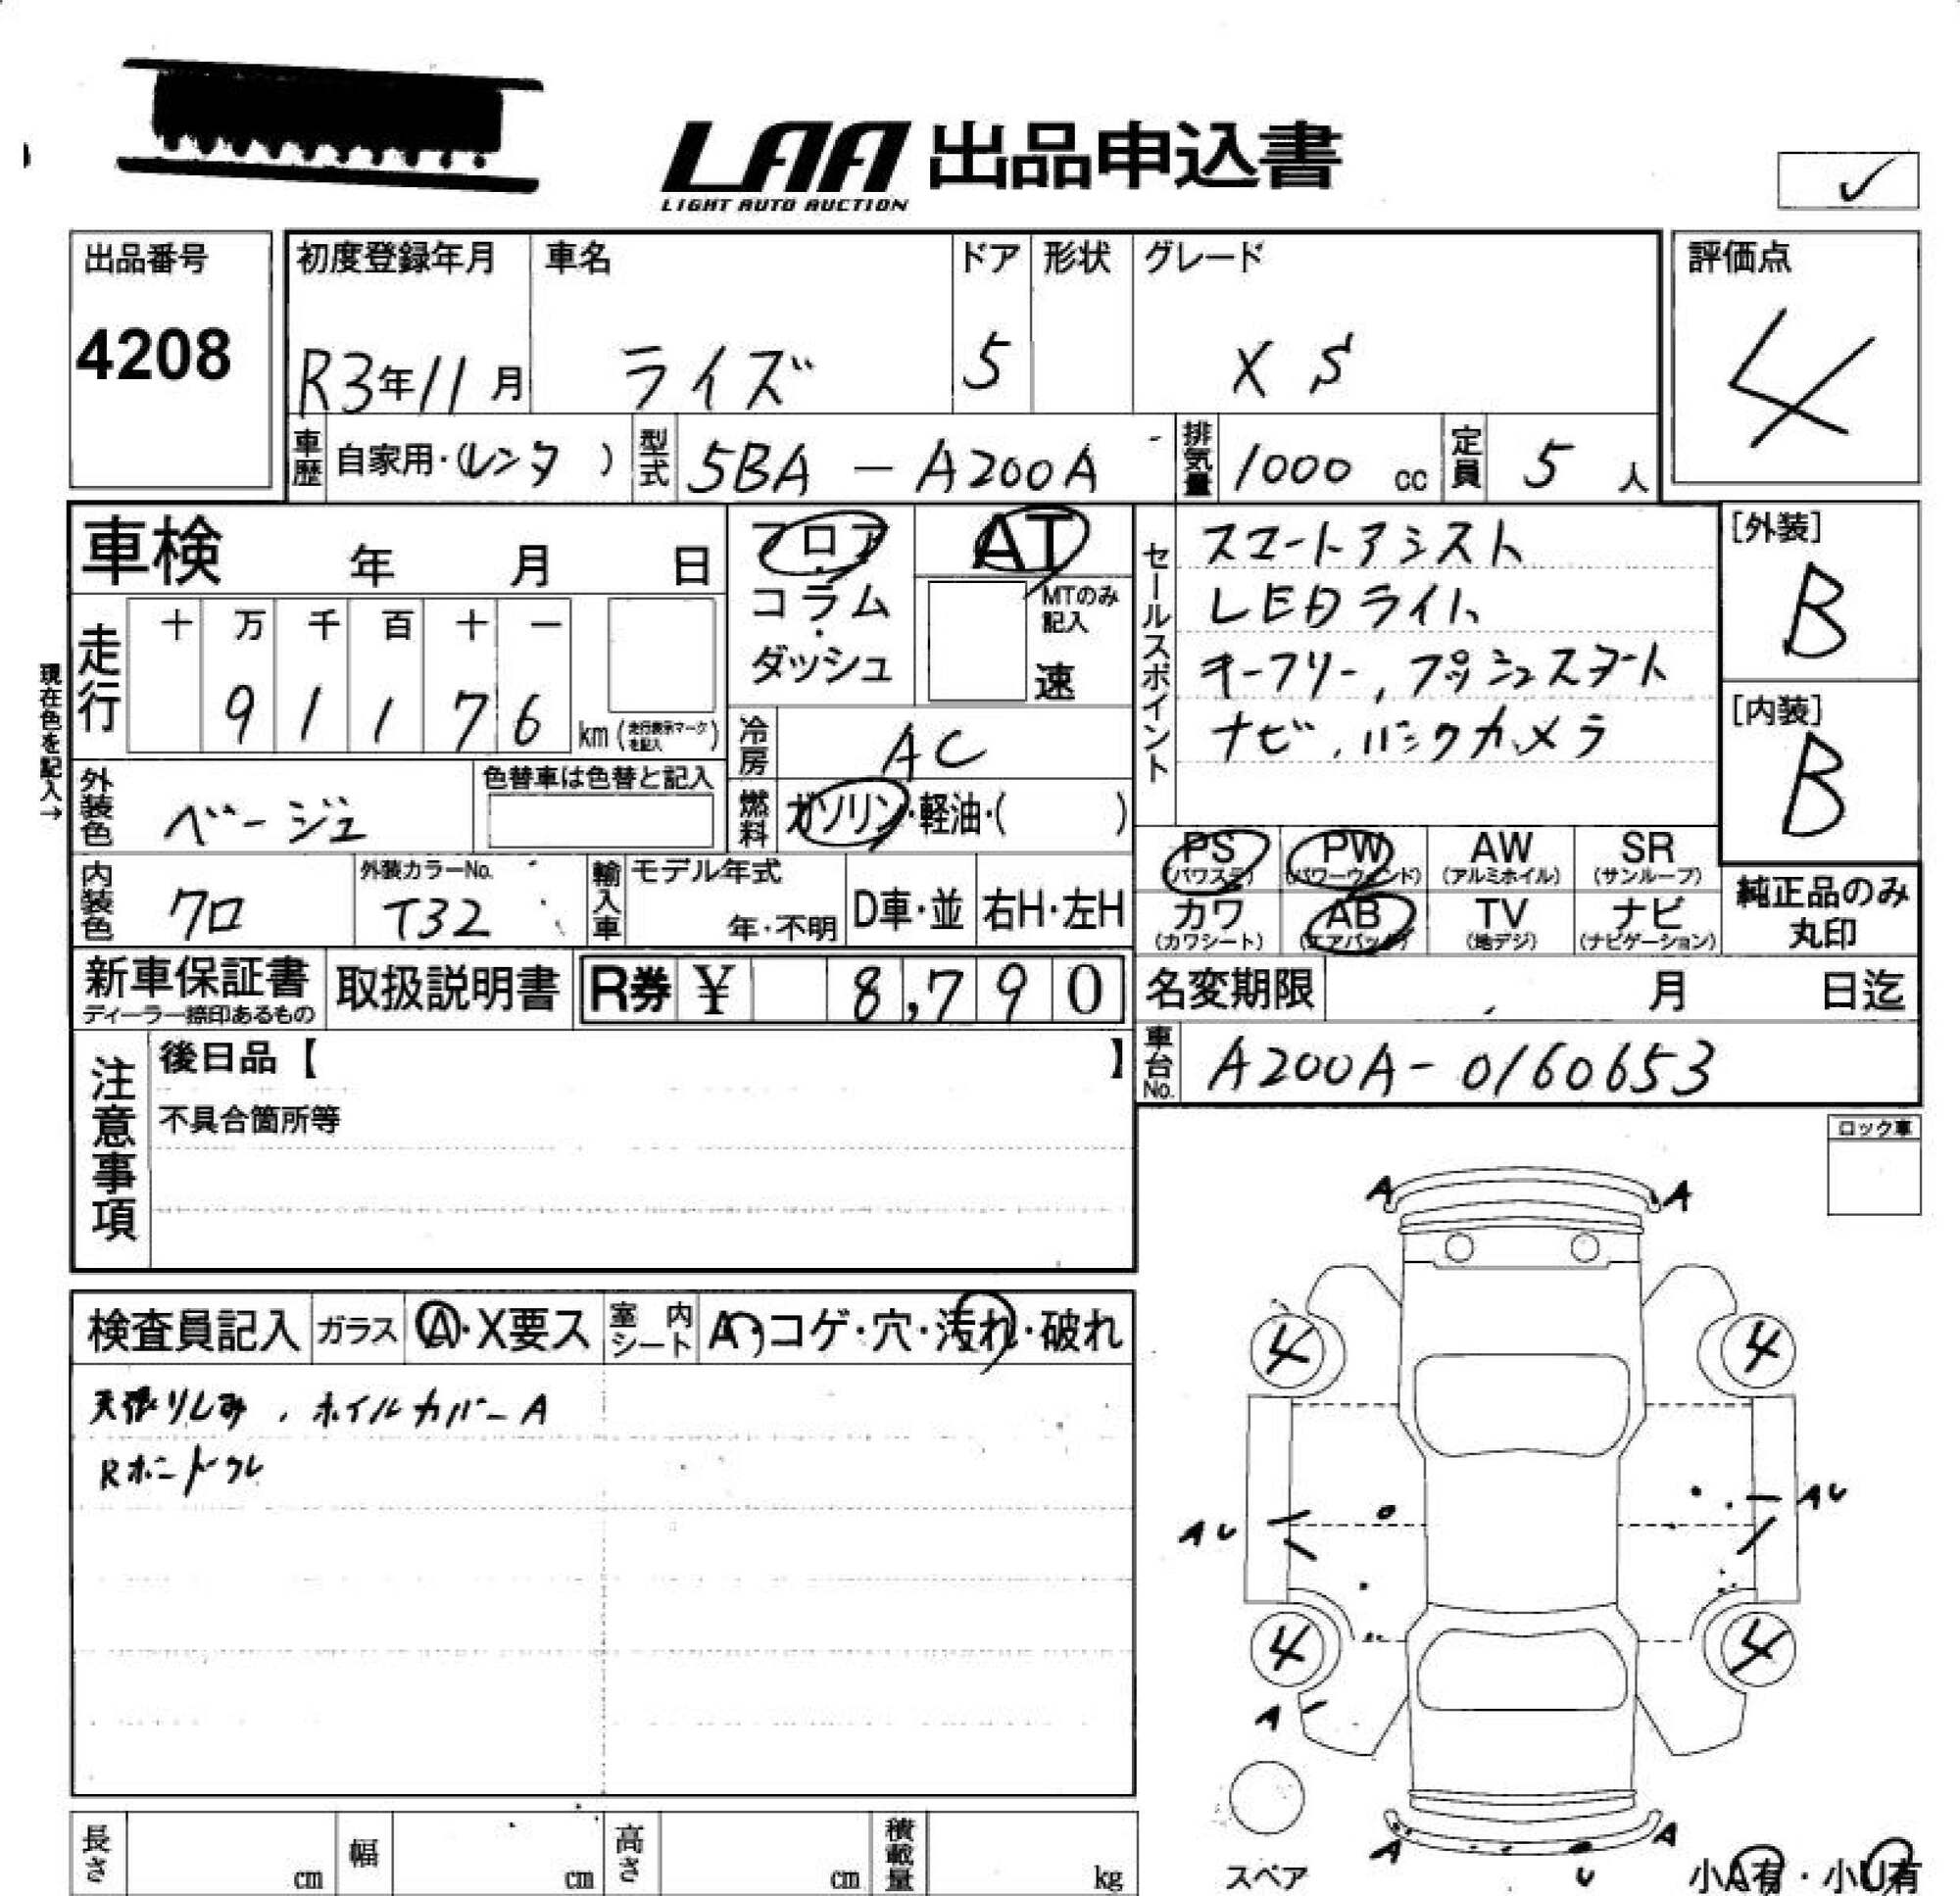 LAA 出品申込書
LIGHT AUTO AUCTION
✓
出品番号
4208
初度登録年月
R3年11月
車名
ライズ
ドア
5
形状
グレード
X S
評価点
4
車歴
自家用・(レンタ )
型式
5BA - A200A
排気量
1000 cc
定員
5 人
車検 年 月 日
現在色を記入→
走行
十 万 千 百 十 一
9 1 1 7 6
km(走行表示マークを記入)
フロア
・
コラム
・
ダッシュ
AT
MTのみ
記入
速
冷房
AC
燃料
ガソリン・軽油・( )
外装色
ベージュ
色替車は色替と記入
内装色
クロ
外装カラーNo.
T32
輸入車
モデル年式
年・不明
D車・並
右H・左H
セールスポイント
スマートアシスト
LEDライト
キーフリー,プッシュスタート
ナビ,バックカメラ
[外装]
B
[内装]
B
PS
(パワステ)
PW
(パワーウィンド)
AW
(アルミホイル)
SR
(サンルーフ)
カワ
(カワシート)
AB
(エアバッグ)
TV
(地デジ)
ナビ
(ナビゲーション)
純正品のみ
丸印
新車保証書
ディーラー捺印あるもの
取扱説明書
R券 ¥ 8,790
名変期限 月 日迄
車台No.
A200A-0160653
注意事項
後日品【 】
不具合箇所等
ロック車
検査員記入
ガラス
A・X要ス
室内
シート
A・コゲ・穴・汚れ・破れ
天張りしみ、ホイルカバーA
A A
4 4
AU AU
4 4
A
A A
U
スペア
小A有・小U有
長さ cm
幅 cm
高さ cm
積載量 kg